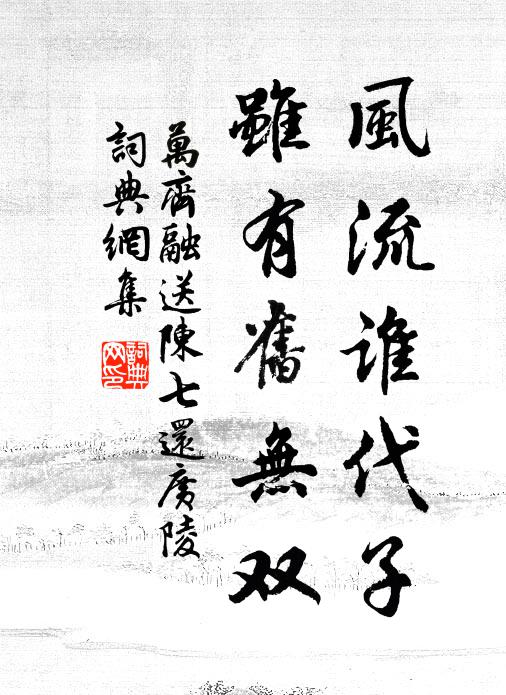 風流誰代子
雖有舊無双
萬齊融送陳七還广陵
詞典網集
詞典网印